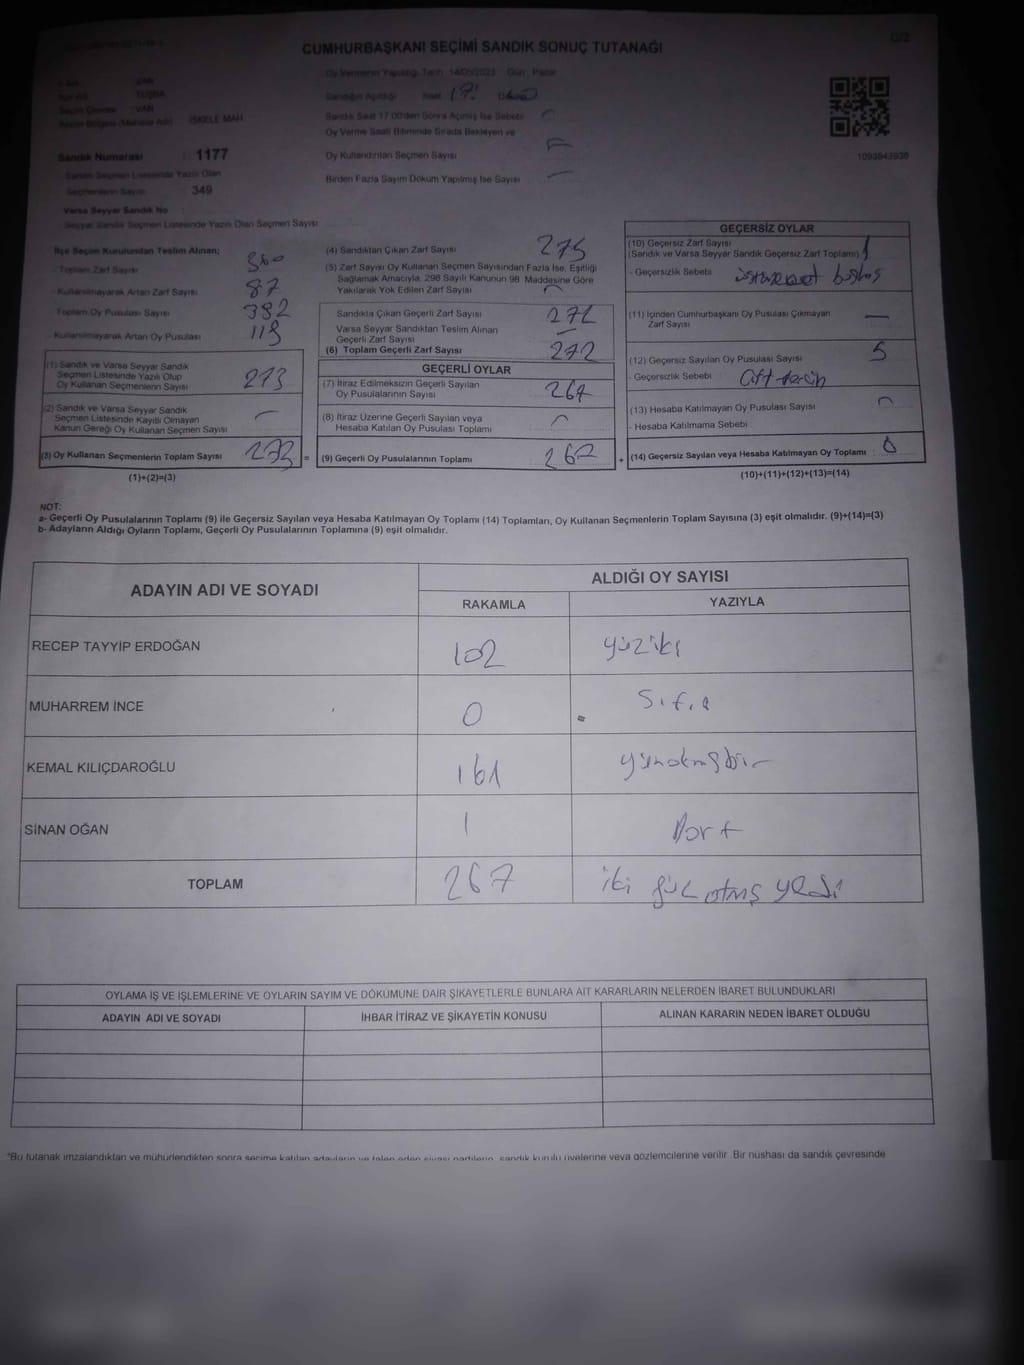 C/2
CUMHURBAŞKANI SEÇİMİ SANDIK SONUÇ TUTANAĞI
Oy Vermenin Yapıldığı Tarih 14/05/2023 Gün Pazar
VAN
TUŞBA
Sandığın Açıldığı Saat 17:
VAN
İSKELE MAH.
Sandık Saat 17.00'den Sonra Açılmış İse Sebebi
Oy Verme Saati Bitiminde Sırada Bekleyen ve
Oy Kullandırılan Seçmen Sayısı
Birden Fazla Sayım Döküm Yapılmış İse Sayısı
1093843936
Sandık Numarası : 1177
Sandık Seçmen Listesinde Yazılı Olan
Seçmenlerin Sayısı 349
Varsa Seyyar Sandık No
Seyyar Sandık Seçmen Listesinde Yazılı Olan Seçmen Sayısı
İlçe Seçim Kurulundan Teslim Alınan;
- Toplam Zarf Sayısı 360
- Kullanılmayarak Artan Zarf Sayısı 87
Toplam Oy Pusulası Sayısı 392
- Kullanılmayarak Artan Oy Pusulası
(1) Sandık ve Varsa Seyyar Sandık
Seçmen Listesinde Yazılı Olup
Oy Kullanan Seçmenlerin Sayısı 273
(2) Sandık ve Varsa Seyyar Sandık
Seçmen Listesinde Kayıtlı Olmayan
Kanun Gereği Oy Kullanan Seçmen Sayısı
(3) Oy Kullanan Seçmenlerin Toplam Sayısı 273 =
(1)+(2)=(3)
(4) Sandıktan Çıkan Zarf Sayısı
(5) Zarf Sayısı Oy Kullanan Seçmen Sayısından Fazla İse, Eşitliği
Sağlamak Amacıyla, 298 Sayılı Kanunun 98. Maddesine Göre
Yakılarak Yok Edilen Zarf Sayısı
Sandıkta Çıkan Geçerli Zarf Sayısı 272
Varsa Seyyar Sandıktan Teslim Alınan
Geçerli Zarf Sayısı
(6) Toplam Geçerli Zarf Sayısı 272
GEÇERLİ OYLAR
(7) İtiraz Edilmeksizin Geçerli Sayılan
Oy Pusulalarının Sayısı 267
(8) İtiraz Üzerine Geçerli Sayılan veya
Hesaba Katılan Oy Pusulası Toplamı
(9) Geçerli Oy Pusulalarının Toplamı 267 +
GEÇERSİZ OYLAR
(10) Geçersiz Zarf Sayısı
(Sandık ve Varsa Seyyar Sandık Geçersiz Zarf Toplamı) 1
- Geçersizlik Sebebi
(11) İçinden Cumhurbaşkanı Oy Pusulası Çıkmayan
Zarf Sayısı —
(12) Geçersiz Sayılan Oy Pusulası Sayısı 5
- Geçersizlik Sebebi
(13) Hesaba Katılmayan Oy Pusulası Sayısı
- Hesaba Katılmama Sebebi
(14) Geçersiz Sayılan veya Hesaba Katılmayan Oy Toplamı
(10)+(11)+(12)+(13)=(14)
NOT:
a- Geçerli Oy Pusulalarının Toplamı (9) ile Geçersiz Sayılan veya Hesaba Katılmayan Oy Toplamı (14) Toplamları, Oy Kullanan Seçmenlerin Toplam Sayısına (3) eşit olmalıdır. (9)+(14)=(3)
b- Adayların Aldığı Oyların Toplamı, Geçerli Oy Pusulalarının Toplamına (9) eşit olmalıdır.
ADAYIN ADI VE SOYADI
ALDIĞI OY SAYISI
RAKAMLA YAZIYLA
RECEP TAYYİP ERDOĞAN 102 yüziki
MUHARREM İNCE 0
KEMAL KILIÇDAROĞLU 161
SİNAN OĞAN Dört
TOPLAM 267 iki yüz otmış yedi
OYLAMA İŞ VE İŞLEMLERİNE VE OYLARIN SAYIM VE DÖKÜMÜNE DAİR ŞİKAYETLERLE BUNLARA AİT KARARLARIN NELERDEN İBARET BULUNDUKLARI
ADAYIN ADI VE SOYADI İHBAR İTİRAZ VE ŞİKAYETİN KONUSU ALINAN KARARIN NEDEN İBARET OLDUĞU
*Bu tutanak imzalandıktan ve mühürlendikten sonra seçime katılan adayların ve talep eden siyasi partilerin, sandık kurulu üyelerine veya gözlemcilerine verilir. Bir nüshası da sandık çevresinde